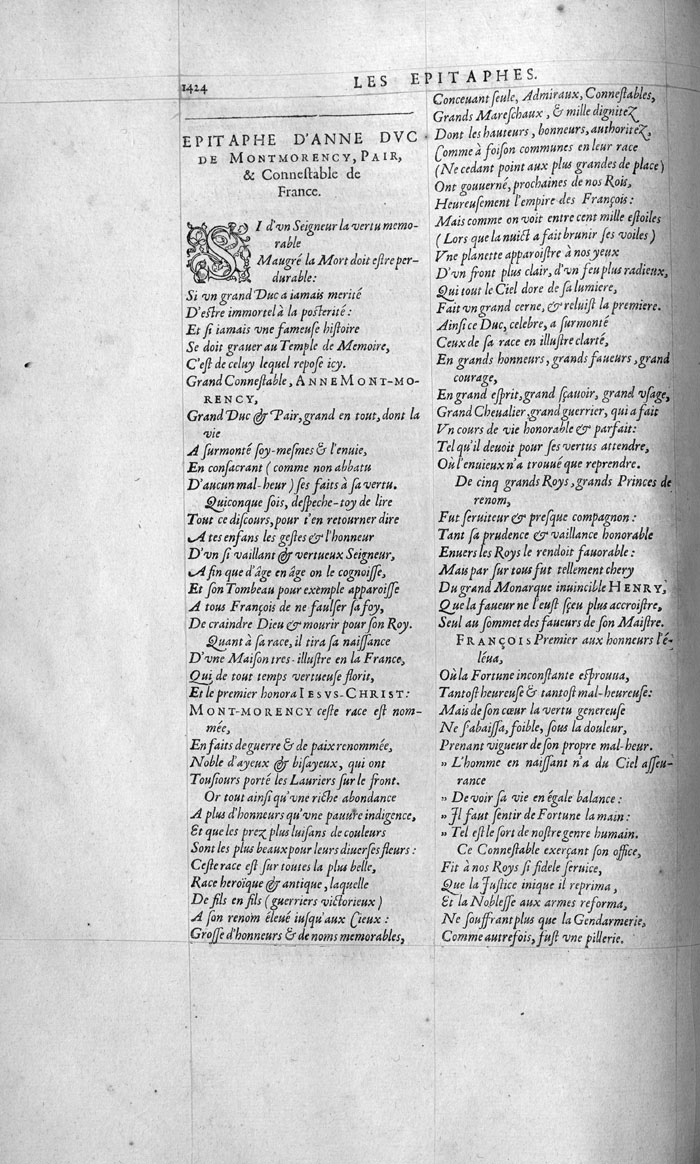 1424
LES EPITAPHES.
EPITAPHE D'ANNE DVC
DE MONTMORENCY, PAIR,
& Conneſtable de
France.
SI d'vn Seigneur la vertu memo-
rable
Maugré la Mort doit eſtre per-
durable:
Si vn grand Duc a iamais merité
D'eſtre immortel à la poſterité:
Et ſi iamais vne fameuſe hiſtoire
Se doit grauer au Temple de Memoire,
C'eſt de celuy lequel repoſe icy.
Grand Conneſtable, ANNE MONT-MO-
RENCY,
Grand Duc & Pair, grand en tout, dont la
vie
A ſurmonté ſoy-meſmes & l'enuie,
En conſacrant (comme non abbatu
D'aucun mal-heur) ſes faits à ſa vertu.
Quiconque ſois, deſpeche-toy de lire
Tout ce diſcours, pour t'en retourner dire
A tes enfans les geſtes & l'honneur
D'vn ſi vaillant & vertueux Seigneur,
A fin que d'âge en âge on le cognoiſſe,
Et ſon Tombeau pour exemple apparoiſſe
A tous François de ne faulſer ſa foy,
De craindre Dieu & mourir pour ſon Roy.
Quant à ſa race, il tira ſa naiſſance
D'vne Maiſon tres-illuſtre en la France,
Qui de tout temps vertueuſe florit,
Et le premier honora IESVS-CHRIST:
MONT-MORENCY ceſte race eſt nom-
mée,
En faits de guerre & de paix renommée,
Noble d'ayeux & biſayeux, qui ont
Touſiours porté les Lauriers ſur le front.
Or tout ainſi qu'vne riche abondance
A plus d'honneurs qu'vne pauure indigence,
Et que les prez plus luiſans de couleurs
Sont les plus beaux pour leurs diuerſes fleurs:
Ceſte race eſt ſur toutes la plus belle,
Race heroïque & antique, laquelle
De fils en fils (guerriers victorieux)
A ſon renom éleué iuſqu'aux Cieux:
Groſſe d'honneurs & de noms memorables,
Conceuant ſeule, Admiraux, Conneſtables,
Grands Mareſchaux, & mille dignitez
Dont les hauteurs, honneurs, authoritez,
Comme à foiſon communes en leur race
(Ne cedant point aux plus grandes de place)
Ont gouuerné, prochaines de nos Rois,
Heureuſement l'empire des François:
Mais comme on voit entre cent mille eſtoiles
(Lors que la nuict a fait brunir ſes voiles)
Vne planette apparoiſtre à nos yeux
D'vn front plus clair, d'vn feu plus radieux,
Qui tout le Ciel dore de ſa lumiere,
Fait vn grand cerne, & reluiſt la premiere.
Ainſi ce Duc, celebre, a ſurmonté
Ceux de ſa race en illuſtre clarté,
En grands honneurs, grands faueurs, grand
courage,
En grand eſprit, grand ſçauoir, grand vſage,
Grand Cheualier, grand guerrier, qui a fait
Vn cours de vie honorable & parfait:
Tel qu'il deuoit pour ſes vertus attendre,
Où l'enuieux n'a trouué que reprendre.
De cinq grands Roys, grands Princes de
renom,
Fut ſeruiteur & preſque compagnon:
Tant ſa prudence & vaillance honorable
Enuers les Roys le rendoit fauorable:
Mais par ſur tous fut tellement chery
Du grand Monarque inuincible HENRY,
Que la faueur ne l'euſt ſçeu plus accroiſtre,
Seul au ſommet des faueurs de ſon Maiſtre.
FRANÇOIS Premier aux honneurs l'é-
léua,
Où la Fortune inconſtante eſprouua,
Tantoſt heureuſe & tantoſt mal-heureuſe:
Mais de ſon cœur la vertu genereuſe
Ne s'abaiſſa, foible, ſous la douleur,
Prenant vigueur de ſon propre mal-heur.
» L'homme en naiſſant n'a du Ciel aſſeu-
rance
» De voir ſa vie en égale balance:
» Il faut ſentir de Fortune la main:
» Tel eſt le ſort de noſtre genre humain.
Ce Conneſtable exerçant ſon office,
Fit à nos Roys ſi fidele ſeruice,
Que la Juſtice inique il reprima,
Et la Nobleſſe aux armes reforma,
Ne ſouffrant plus que la Gendarmerie,
Comme autrefois, fuſt vne pillerie.